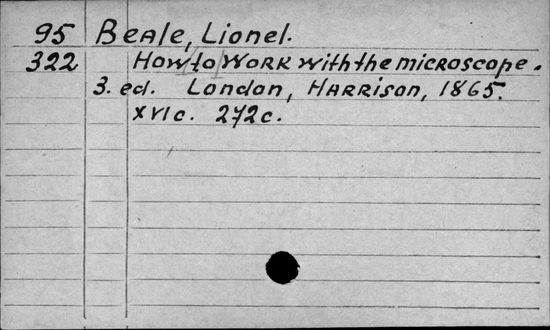 95 Beale, Lionel.
322 How to work with the microscope.
3. ed. London, Harrison, 1865.
XVIc. 272c.